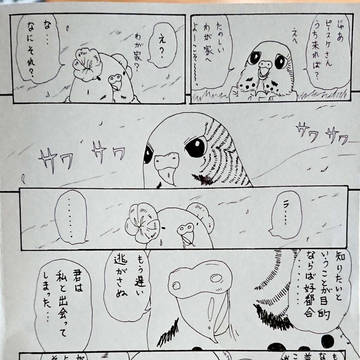 じゃあ
ピースケさん
うち来れば？
え〜
たのしい
わが家へ
よーこそ〜
え？
わが家？
な…
なにそれ？
ザワ
ザワ
ザワ
ザワ
ラ…
………
知りたいと
いうことが目的
ならば好都合
……
もう遅い
逃がさぬ
君は
私と出会って
しまった…